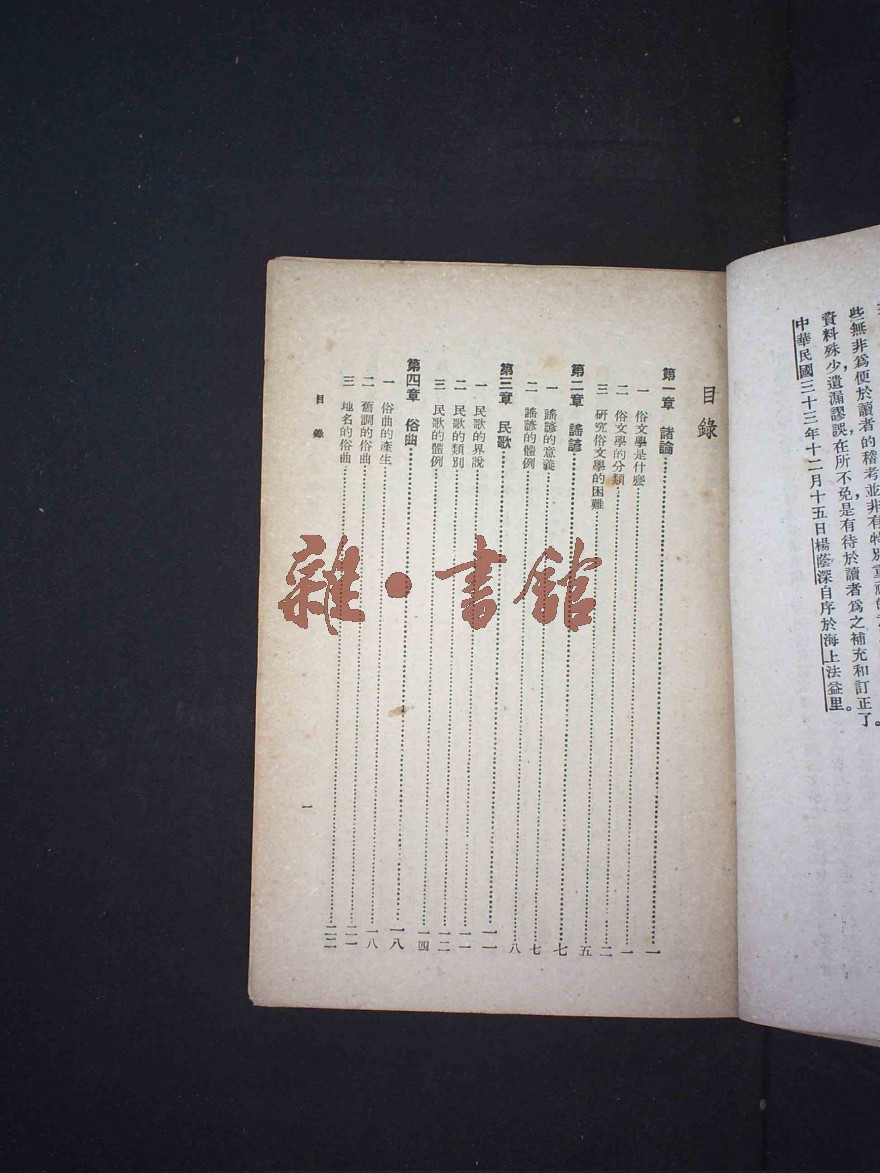 些無非爲便於讀者的稽考,並非有特別重視的
資料殊少,遺漏謬誤,在所不免,是有待於讀者爲之補充和訂正了。
中華民國三十三年十二月十五日楊蔭深自序於海上法益里。
目錄
第一章 緒論……一
一 俗文學是什麼……一
二 俗文學的分類……二
三 研究俗文學的困難……五
第二章 謠諺……七
一 謠諺的意義……七
二 謠諺的體例……八
第三章 民歌……一一
一 民歌的界說……一一
二 民歌的類別……一二
三 民歌的體例……一四
第四章 俗曲……一八
一 俗曲的產生……一八
二 舊調的俗曲……二一
三 地名的俗曲……二二
目錄
一
雜·書館